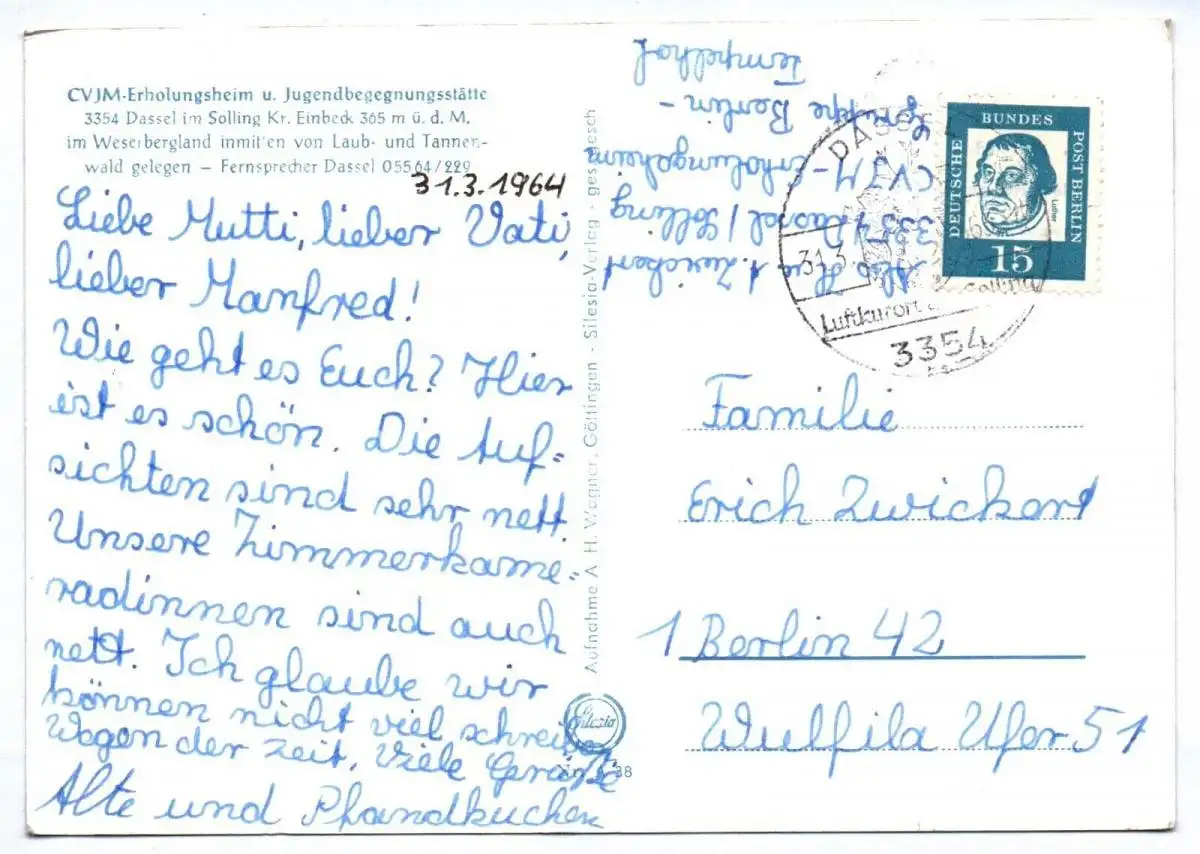 CVJM-Erholungsheim u. Jugendbegegnungsstätte
3354 Dassel im Solling Kr. Einbeck 365 m ü. d. M.
im Weserbergland inmitten von Laub- und Tannen-
wald gelegen – Fernsprecher Dassel 05564/229
31.3.1964
Liebe Mutti, lieber Vati,
lieber Manfred!
Wie geht es Euch? Hier
ist es schön. Die Auf=
sichten sind sehr nett.
Unsere Zimmerkame=
radinnen sind auch
nett. Ich glaube wir
können nicht viel schreiben
Wegen der Zeit. Viele Grüße
Alte und Pfandkuchen
Aufnahme A. H. Wagner, Göttingen - Silesia-Verlag - gesch
Silesia
38
Zwickert
3354 Dassel / Solling
CVJM-Erholungsheim
Gruppe Berlin -
Tempelhof
DASSEL
31.3.
Luftkurort Solling
3354
DEUTSCHE
BUNDES
POST BERLIN
Luther
15
Familie
Erich Zwickert
1 Berlin 42
Wulfila Ufer 51